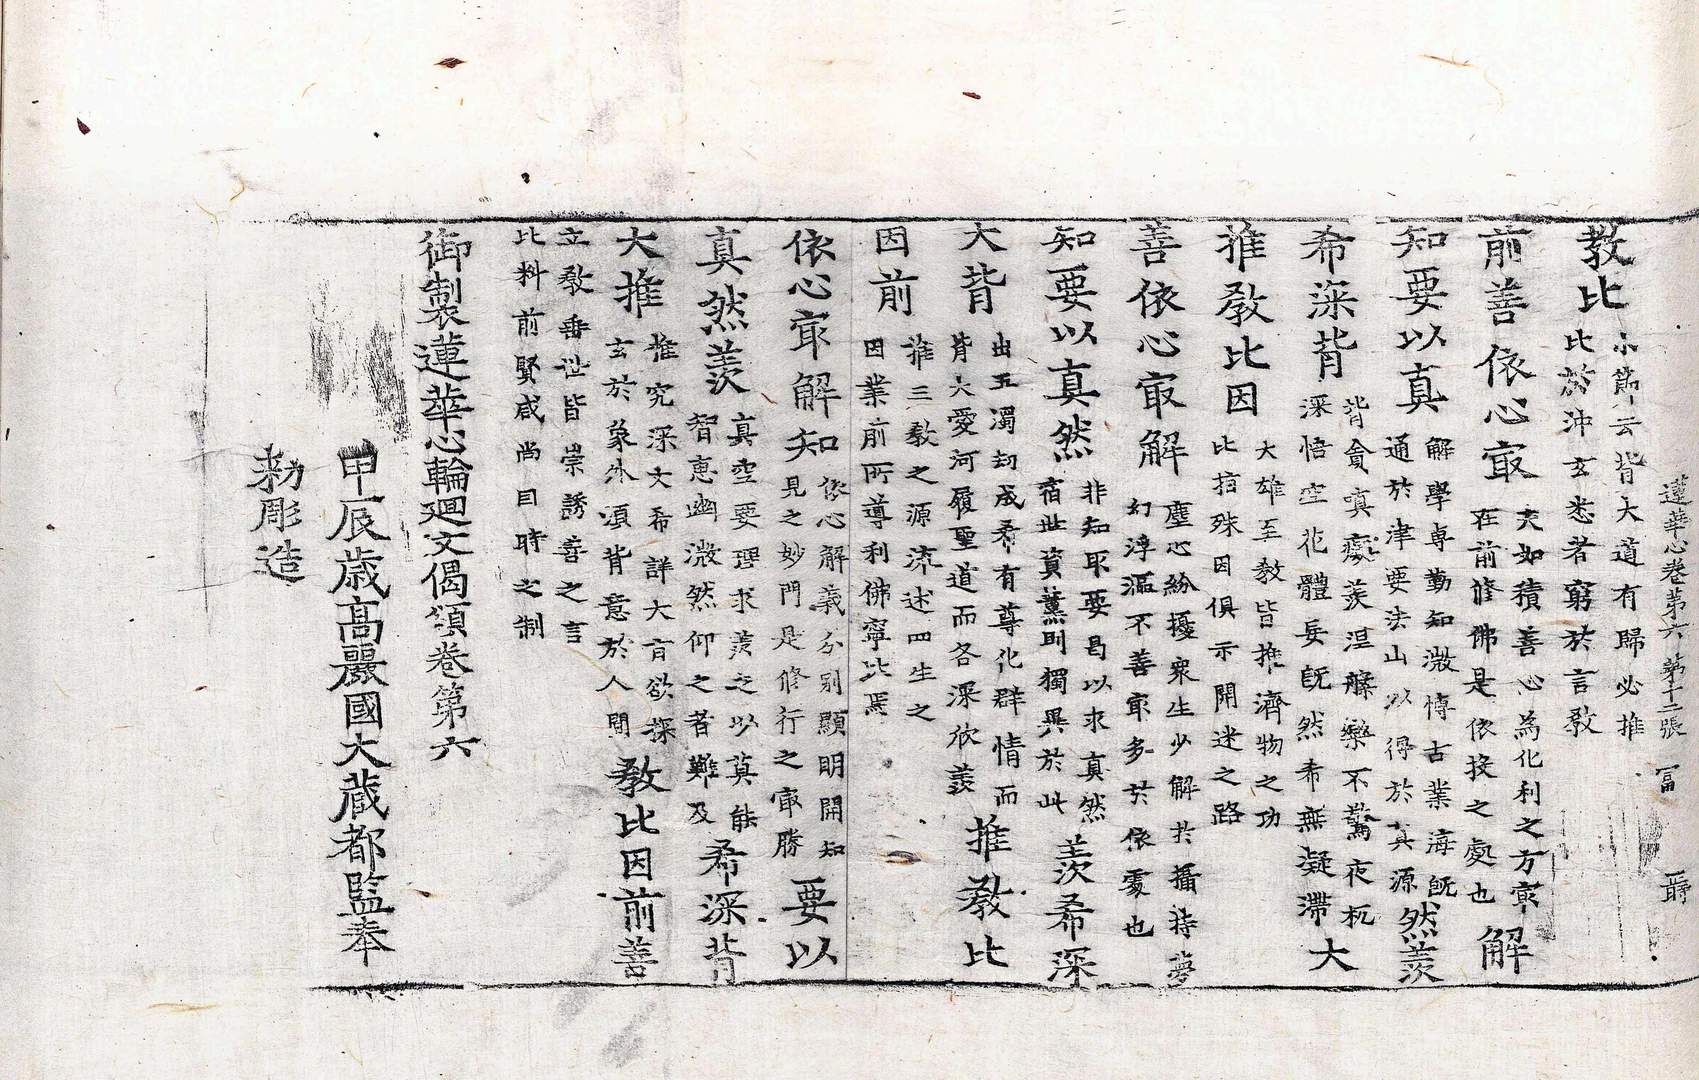 蓮華心卷第六 第十二張 冨
教比 小節云背大道有歸必推
比於沖玄悉若窮於言教
前善依心㝡 夫如積善心為化利之方㝡
在前修佛是依投之處也 解
知要以真 解學專勤知溦博古業海旣
通於津要法山以得於真源 然羨
希深背 背貪嗔癡羨涅槃樂不驚夜杌
深悟空花體妄旣然希無凝滯 大
推教比因 大雄至教皆推濟物之功
比指殊因俱示開迷之路
善依心㝡解 塵心紛擾衆生少解扵攝持夢
幻浮漚不善㝡多扵依處也
知要以真然 非知取要曷以求真然
宿世資薰則獨異於此 羨希深
大背 出五濁劫成希有尊化群情而
背大愛河履聖道而各深欣羨 推教比
因前 推三教之源流述四生之
因業前所導利佛寧比焉
依心㝡解知 依心解義分別顯明開知
見之妙門是修行之㝡勝 要以
真然羨 真空要理求羨之以莫能
智惠幽溦然仰之者難及 希深背
大推 推究深文希詳大旨欲探
玄於象外須背意於人間 教比因前善
立教垂世皆崇誘善之言
比料前賢咸尚目時之制
御製蓮華心輪廻文偈頌卷第六
甲辰歲高麗國大藏都監奉
勑彫造